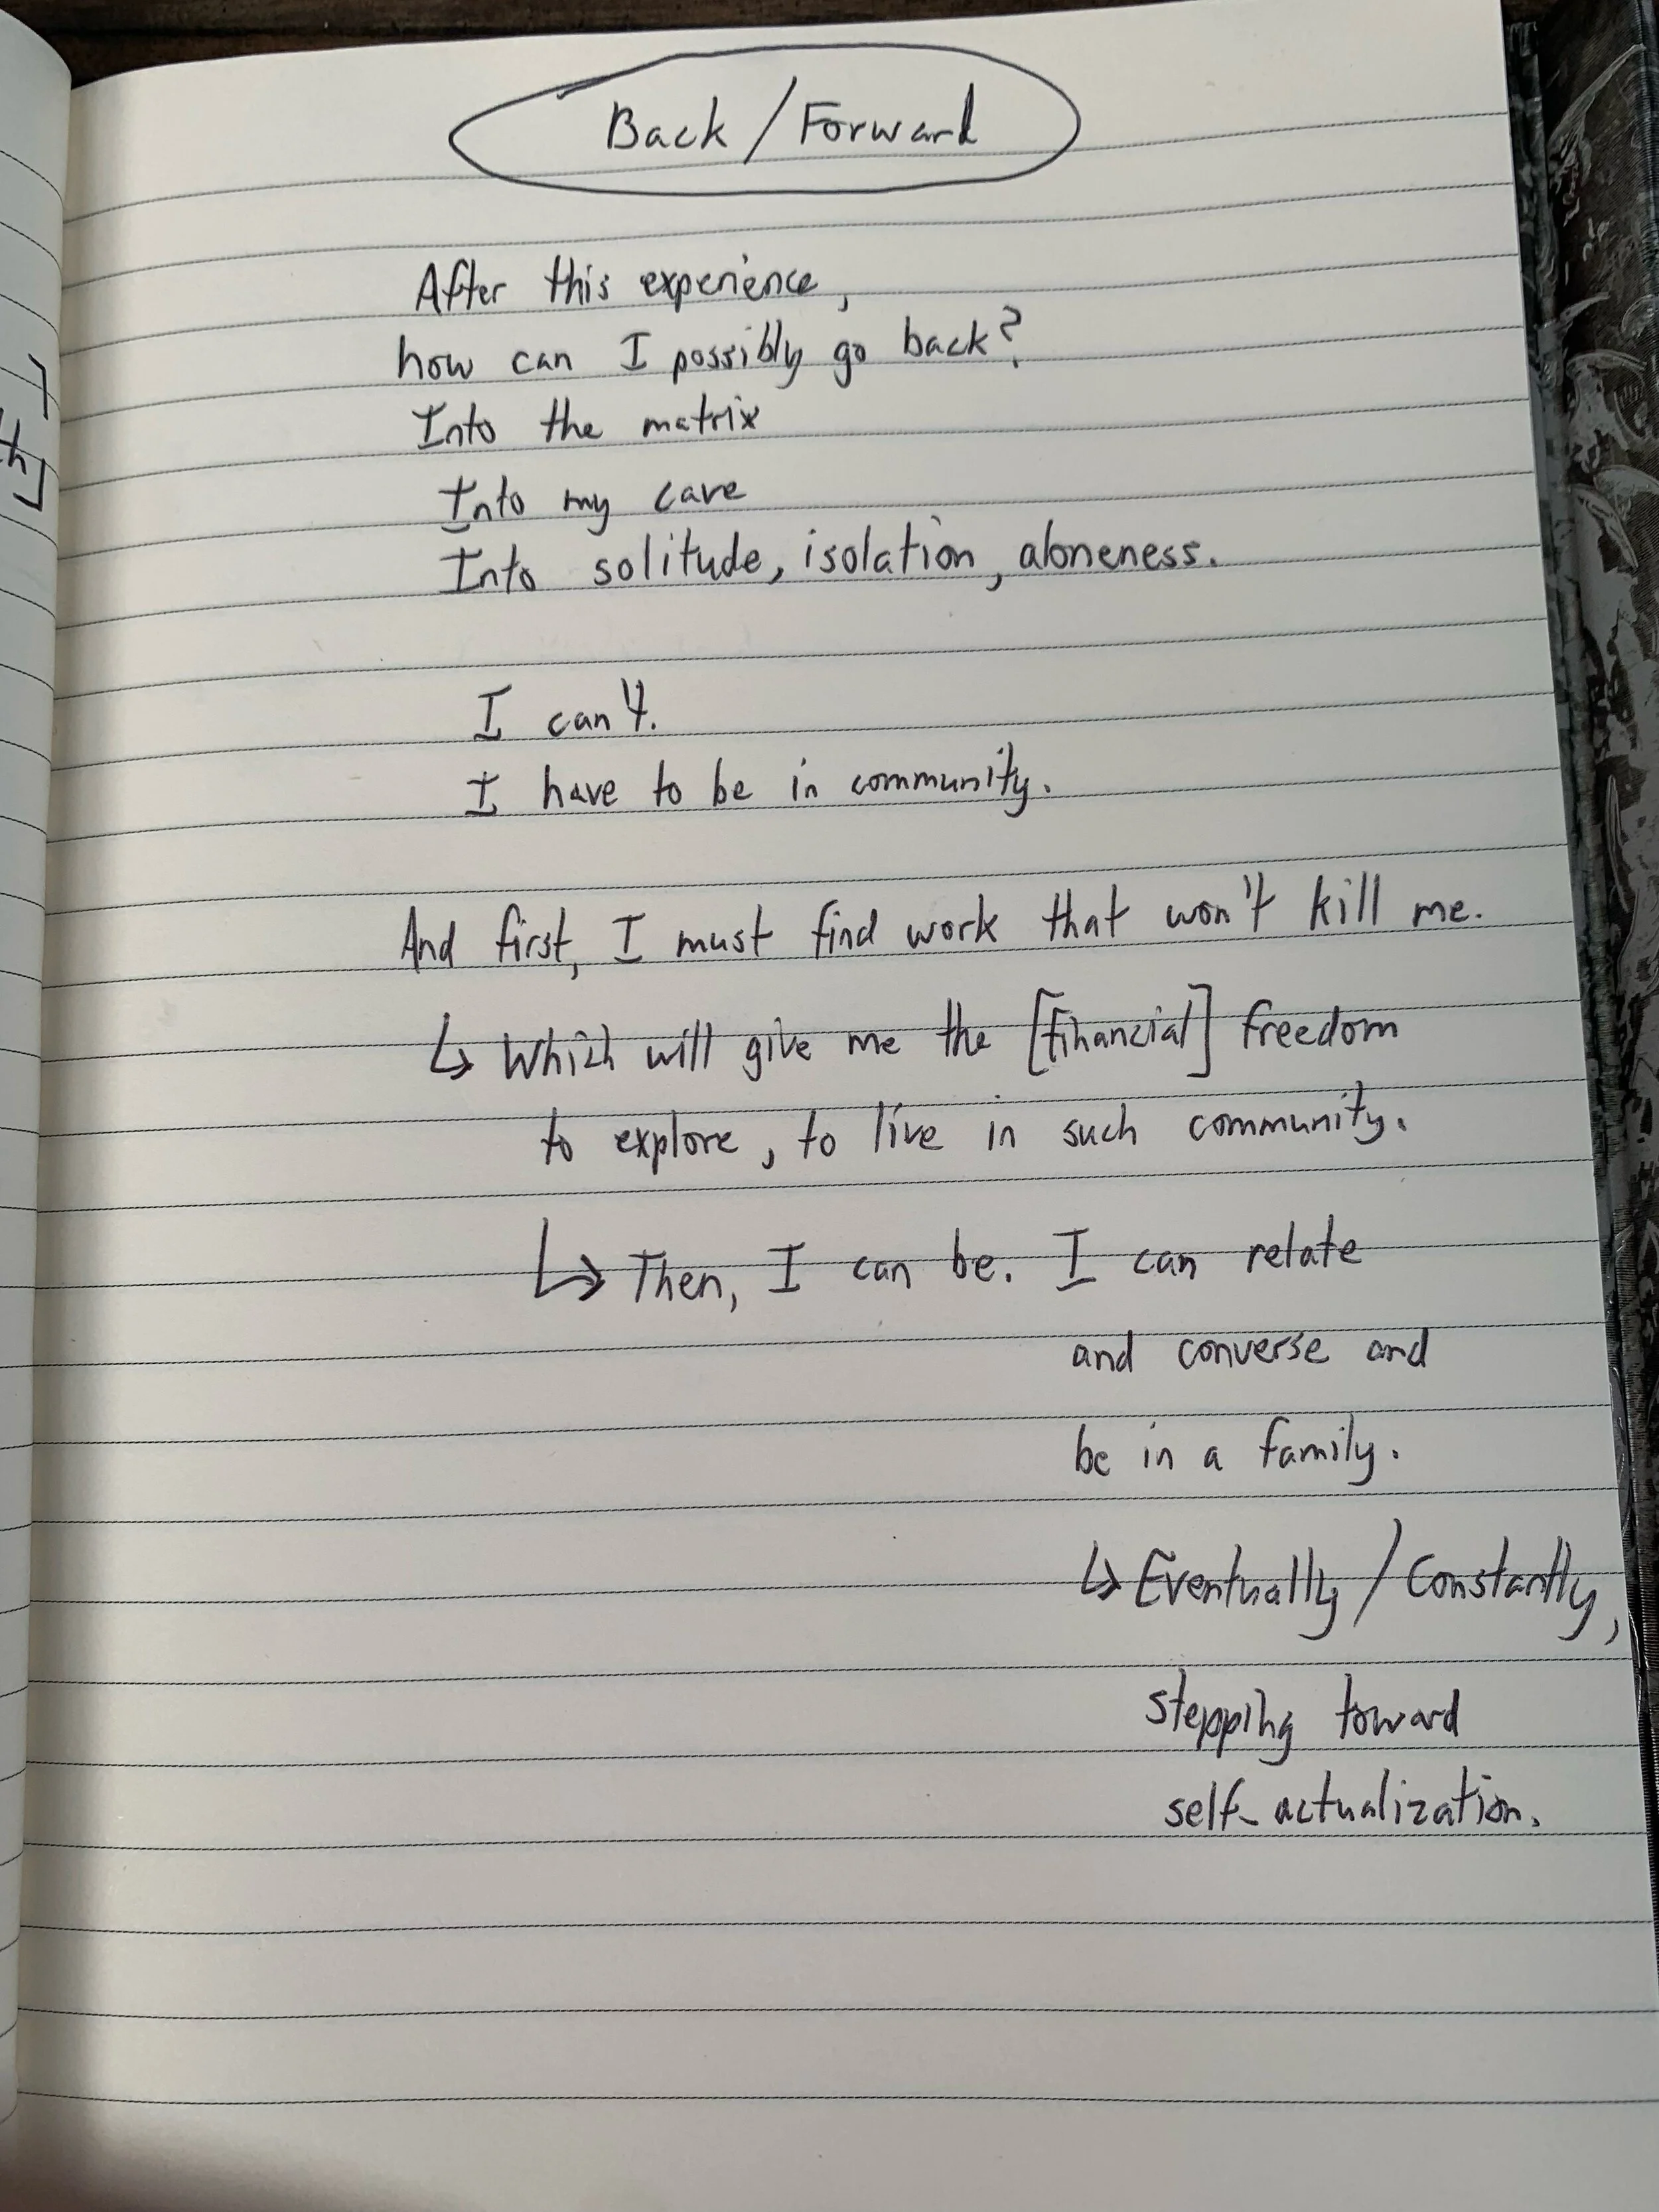 Back / Forward
After this experience,
how can I possibly go back?
Into the matrix
Into my cave
Into solitude, isolation, aloneness.
I can't.
I have to be in community.
And first, I must find work that won't kill me.
↳ Which will give me the [financial] freedom
to explore, to live in such community.
↳ Then, I can be. I can relate
and converse and
be in a family.
↳ Eventually / Constantly,
stepping toward
self-actualization.